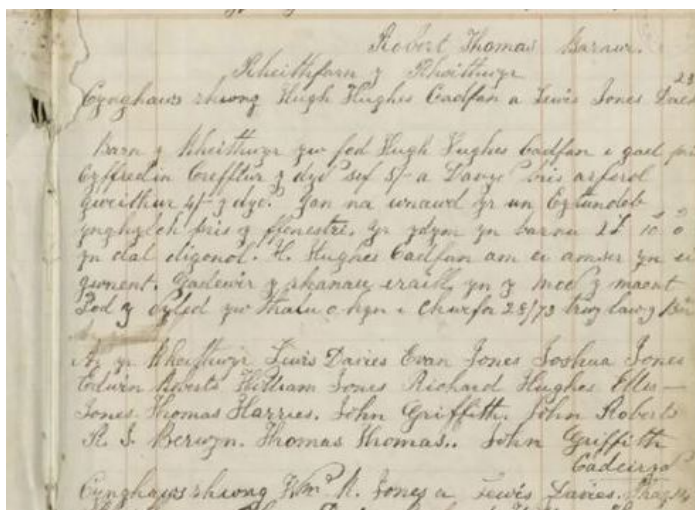 Robert Thomas Barnwr.
Rheithfarn y Rheithwyr
Cynghaws rhwng Hugh Hughes Cadfan a Lewis Jones
Barn y Rheithwyr yw fod Hugh Hughes Cadfan i gael pris
Cyffredin Crefftur y dyd sef 5/- a Davyd bris arferol
gweithiur 4/- y dyd. Gan na wnawd yr un Cytundeb
ynghylch pris y ffenestri, yr ydym yn barnu
yn dal digonol. H. Hughes Cadfan am ei amser yn ei
gwneut. Gadewir y rhanau eraill yn y mod y maent
Fod y dyled yw thalu o hyn i Chwefor 28/73 trwy law y
Ar y Rheithwyr Lewis Davies Evan Jones Joshua Jones
Edwin Roberts William Jones Richard Hughes Ellis
Jones Thomas Harries. John Griffith. John Roberts
R. J. Berwyn. Thomas Thomas.. John Griffith
Cadeiryd
Cynghaws rhwng Wm. R. Jones a Lewis Davies.